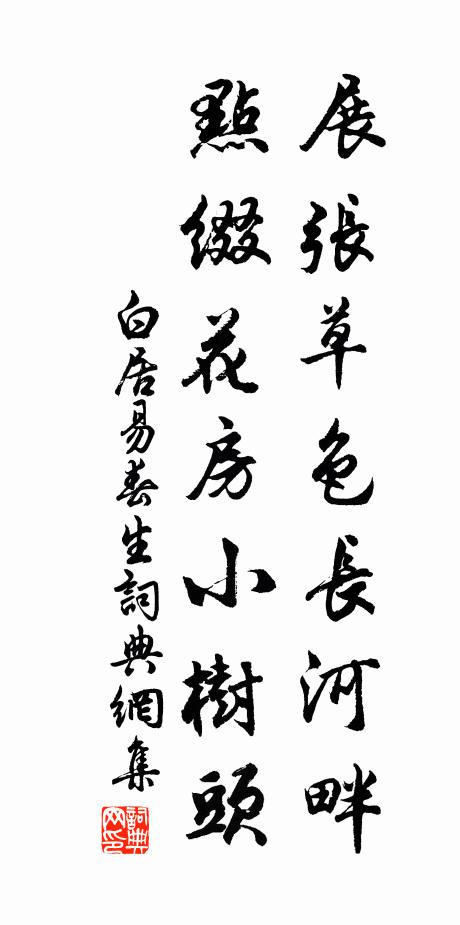 展張草色長河畔
點綴花房小樹頭
白居易春生詞典網集
詞典網印